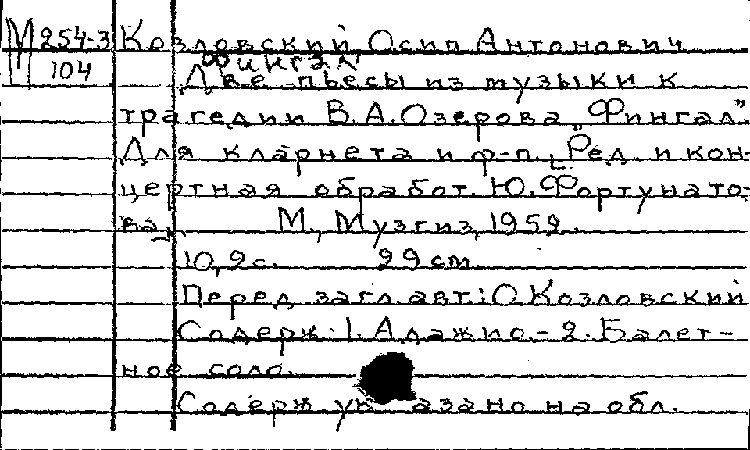 М 254-3 Козловский, Осип Антонович
Фингал
104 Две пьесы из музыки к
трагедии В.А.Озерова „Фингал”
Для кларнета и ф-п. [Ред. и кон-
цертная обработ. Ю.Фортунато-
ва]. М., Музгиз, 1959.
10,2 с. 29 см.
Перед загл. авт.: О.Козловский
Содерж.: 1. Адажио.- 2. Балет-
ное соло.
Содерж. указано на обл.